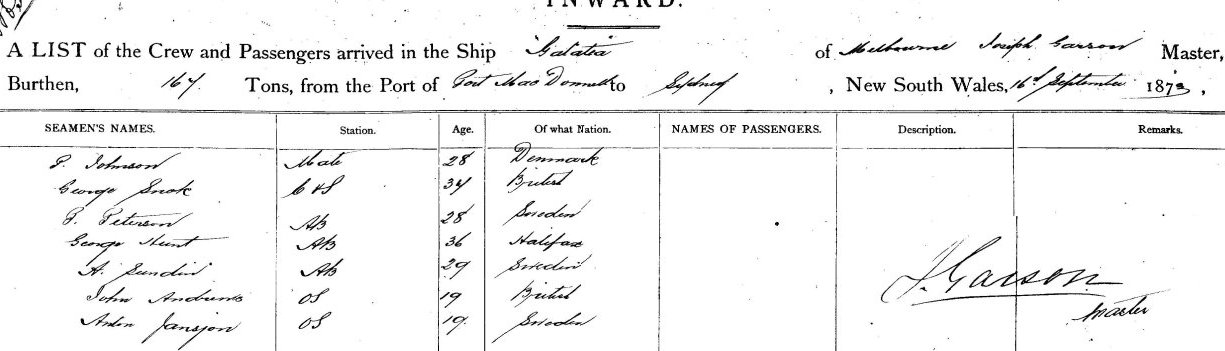 INWARD.
A LIST of the Crew and Passengers arrived in the Ship "Galatea" of Melbourne Joseph Garson Master,
Burthen, 167 Tons, from the Port of Port Mac Donnell to Sydney, New South Wales, 16th September 1873,
SEAMEN'S NAMES. Station. Age. Of what Nation. NAMES OF PASSENGERS. Description. Remarks.
P. Johnson Mate 28 Denmark
George Snok C&S 34 British
P. Peterson AB 28 Sweden
George Hunt AB 36 Halifax
A. Sundin AB 29 Sweden
John Andrews OS 19 British
Anton Jansjon OS 19 Sweden
J. Garson
Master